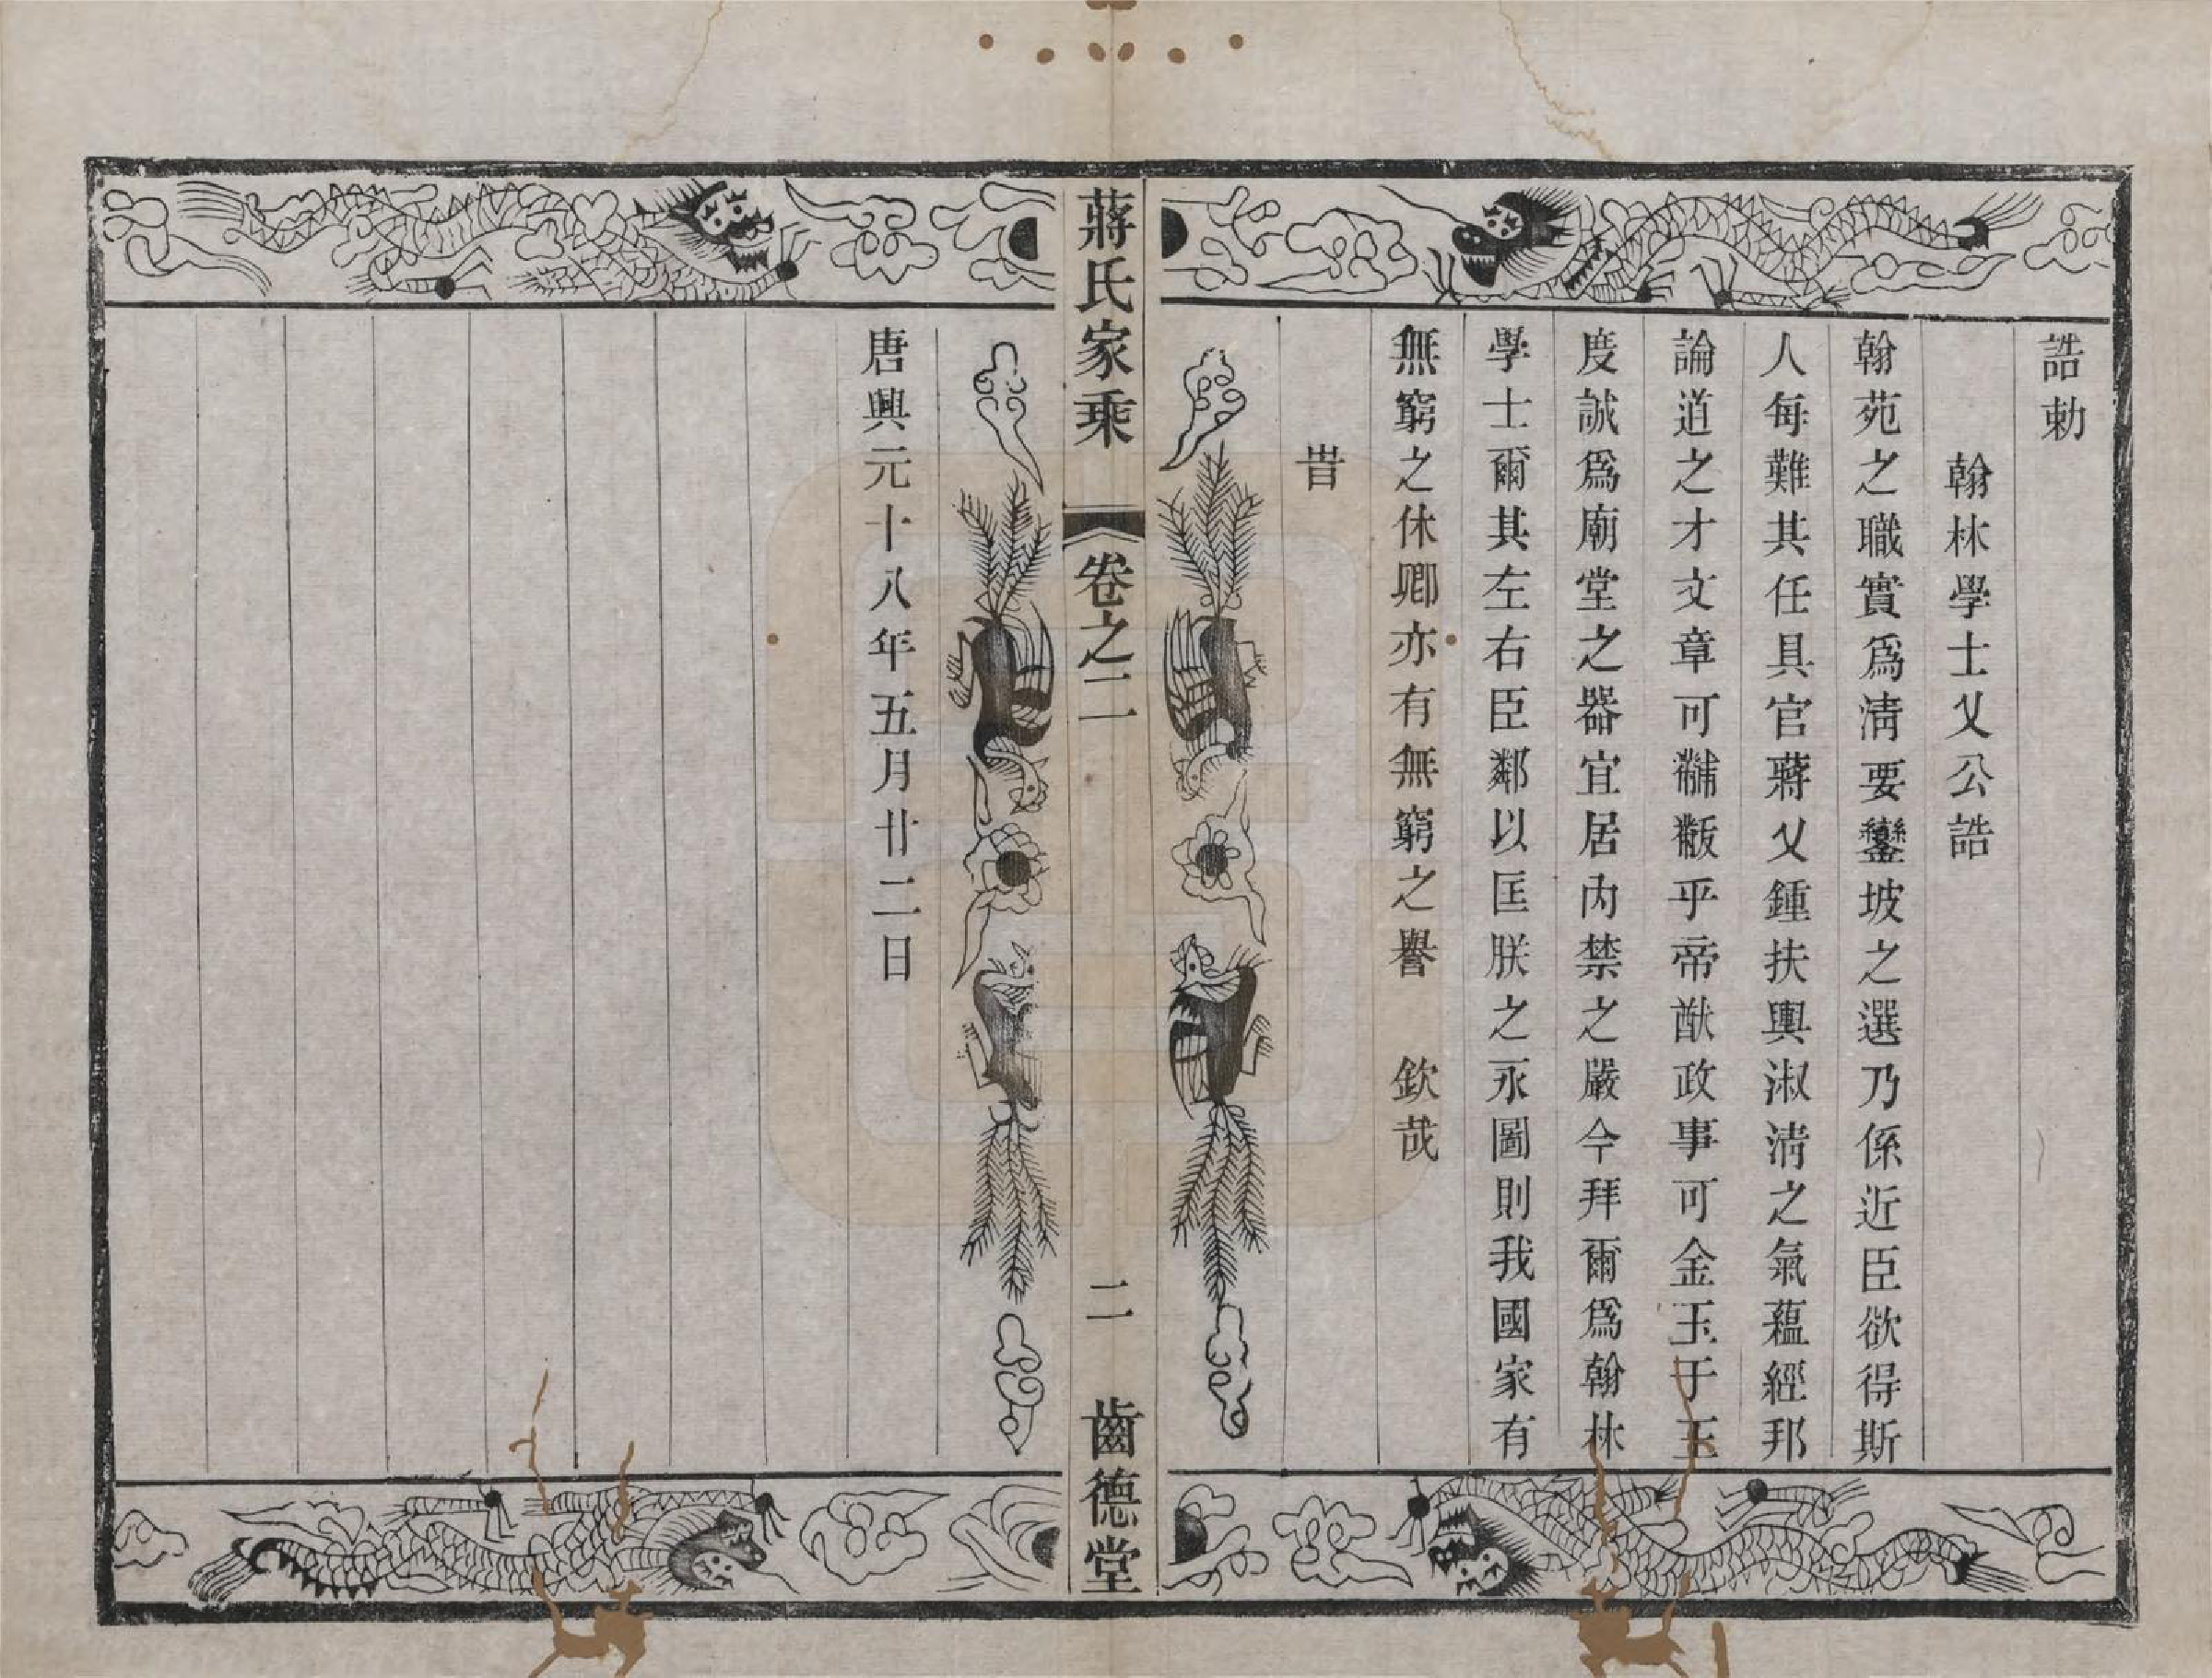 誥勅
翰林學士乂公誥
翰苑之職實爲淸要鑾坡之選乃係近臣欲得斯
人每難其任具官蔣乂鍾扶輿淑淸之氣蘊經邦
論道之才文章可黼黻乎帝猷政事可金玉于王
度誠爲廟堂之器宜居內禁之嚴今拜爾爲翰林
學士爾其左右臣鄰以匡朕之永圖則我國家有
無窮之休卿亦有無窮之譽 欽哉
旹
蔣氏家乘 卷之二 二 齒德堂
唐興元十八年五月廿二日